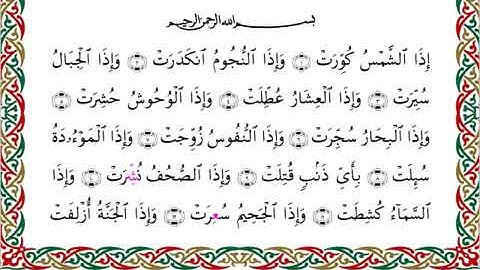 بسم الله الرحمن الرحيم
إِذَا ٱلشَّمْسُ كُوِّرَتْ ۝١ وَإِذَا ٱلنُّجُومُ ٱنكَدَرَتْ ۝٢ وَإِذَا ٱلْجِبَالُ
سُيِّرَتْ ۝٣ وَإِذَا ٱلْعِشَارُ عُطِّلَتْ ۝٤ وَإِذَا ٱلْوُحُوشُ حُشِرَتْ ۝٥
وَإِذَا ٱلْبِحَارُ سُجِّرَتْ ۝٦ وَإِذَا ٱلنُّفُوسُ زُوِّجَتْ ۝٧ وَإِذَا ٱلْمَوْءُۥدَةُ
سُئِلَتْ ۝٨ بِأَىِّ ذَنۢبٍ قُتِلَتْ ۝٩ وَإِذَا ٱلصُّحُفُ نُشِّرَتْ ۝١٠ وَإِذَا
ٱلسَّمَآءُ كُشِطَتْ ۝١١ وَإِذَا ٱلْجَحِيمُ سُعِرَتْ ۝١٢ وَإِذَا ٱلْجَنَّةُ أُزْلِفَتْ